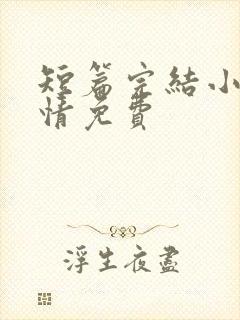 短篇完結小
情免費
浮生夜盡